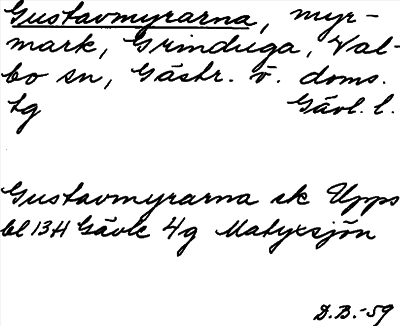 Gustavmyrarna, myr-
mark, Grinduga, Val-
bo sn, Gästr. ö. doms.
tg Gävl. l.
Gustavmyrarna ek Upps
bl 13H Gävle 4g Matyxsjön
D.B.-59